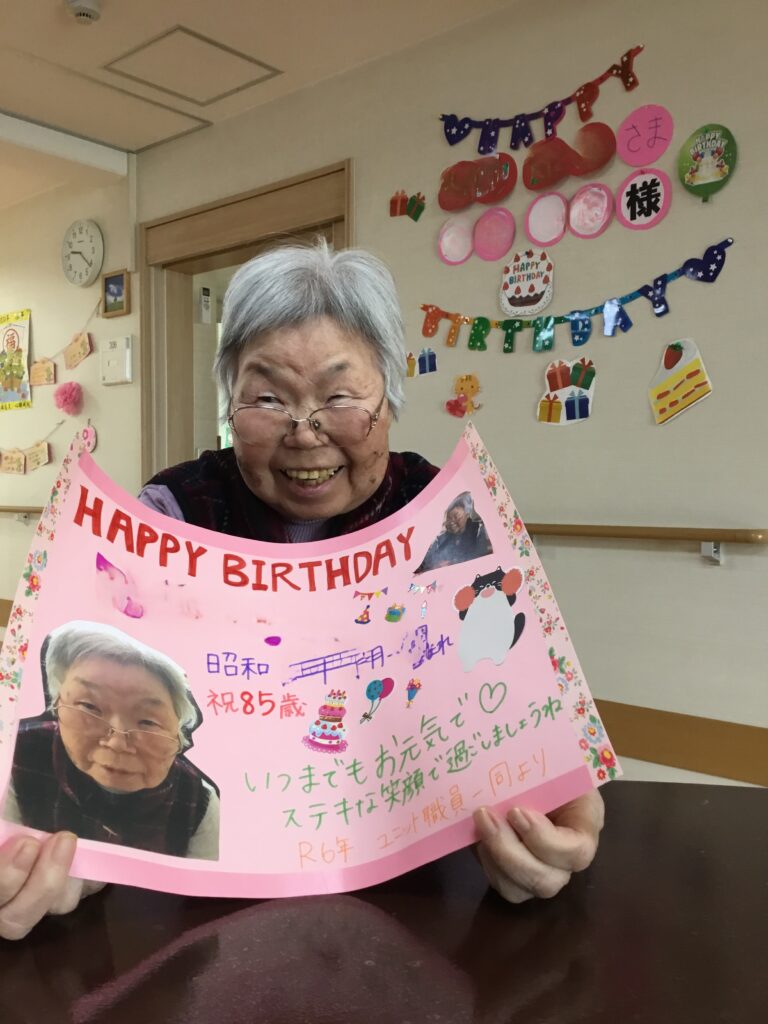 HAPPY
さま
様
HAPPY
BIRTHDAY
HAPPY
BIRTHDAY
BIRTHDAY
HAPPY BIRTHDAY
昭和
祝85歳
いつまでもお元気で♡
ステキな笑顔で過ごしましょうね
R6年 ユニット職員一同より